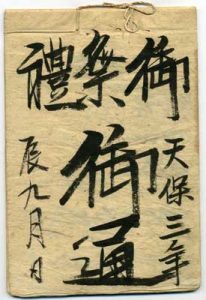 御祭禮
天保三年
御通
辰九月日